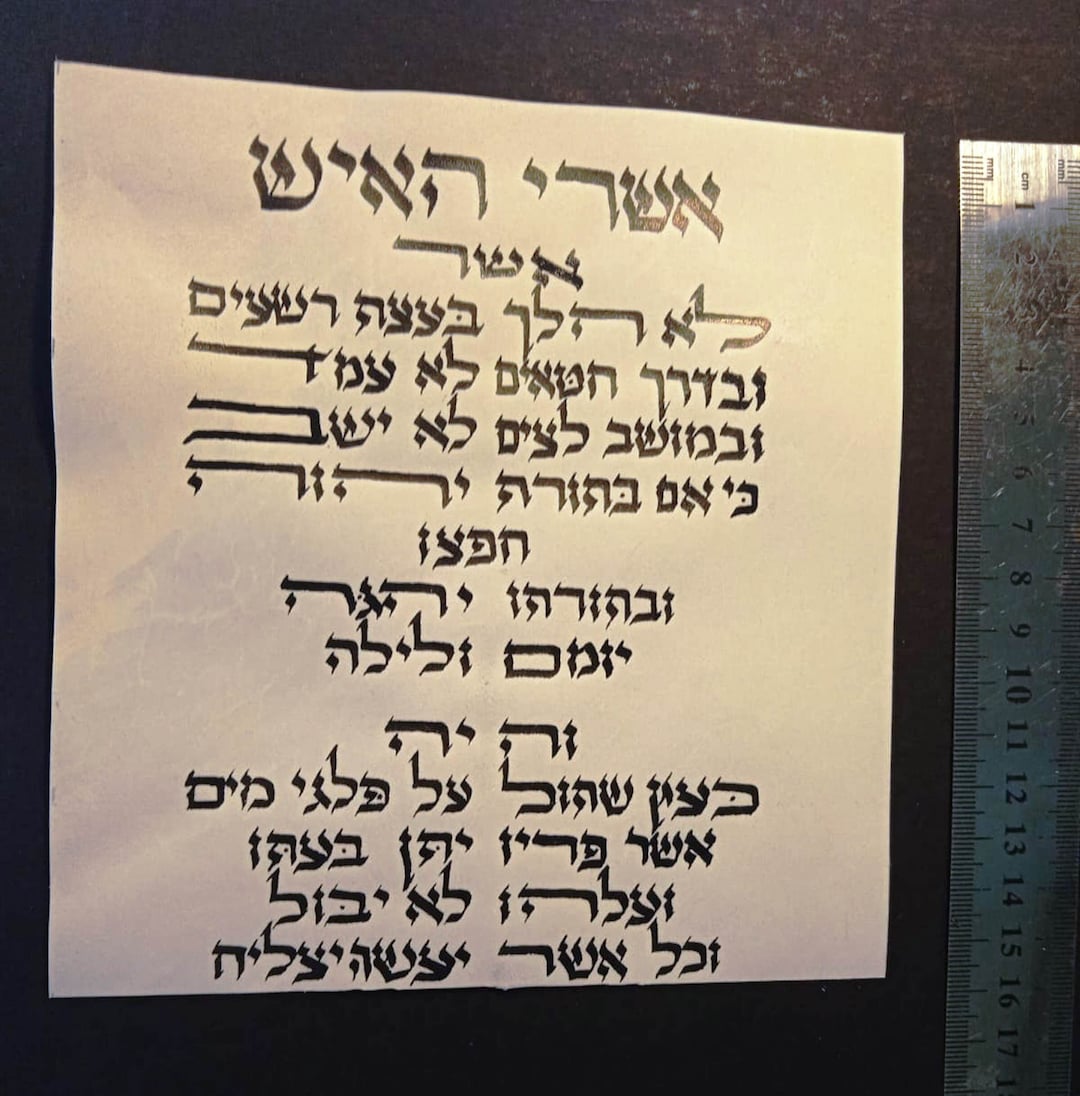 אשרי האיש
אשר
לא הלך בעצת רשעים
ובדרך חטאים לא עמד
ובמושב לצים לא ישב
כי אם בתורת יהוה
חפצו
ובתורתו יהגה
יומם ולילה
והיה
כעץ שתול על פלגי מים
אשר פריו יתן בעתו
ועלהו לא יבול
וכל אשר יעשה יצליח
mm
cm
mm
1
2
3
4
5
6
7
8
9
10
11
12
13
14
15
16
17